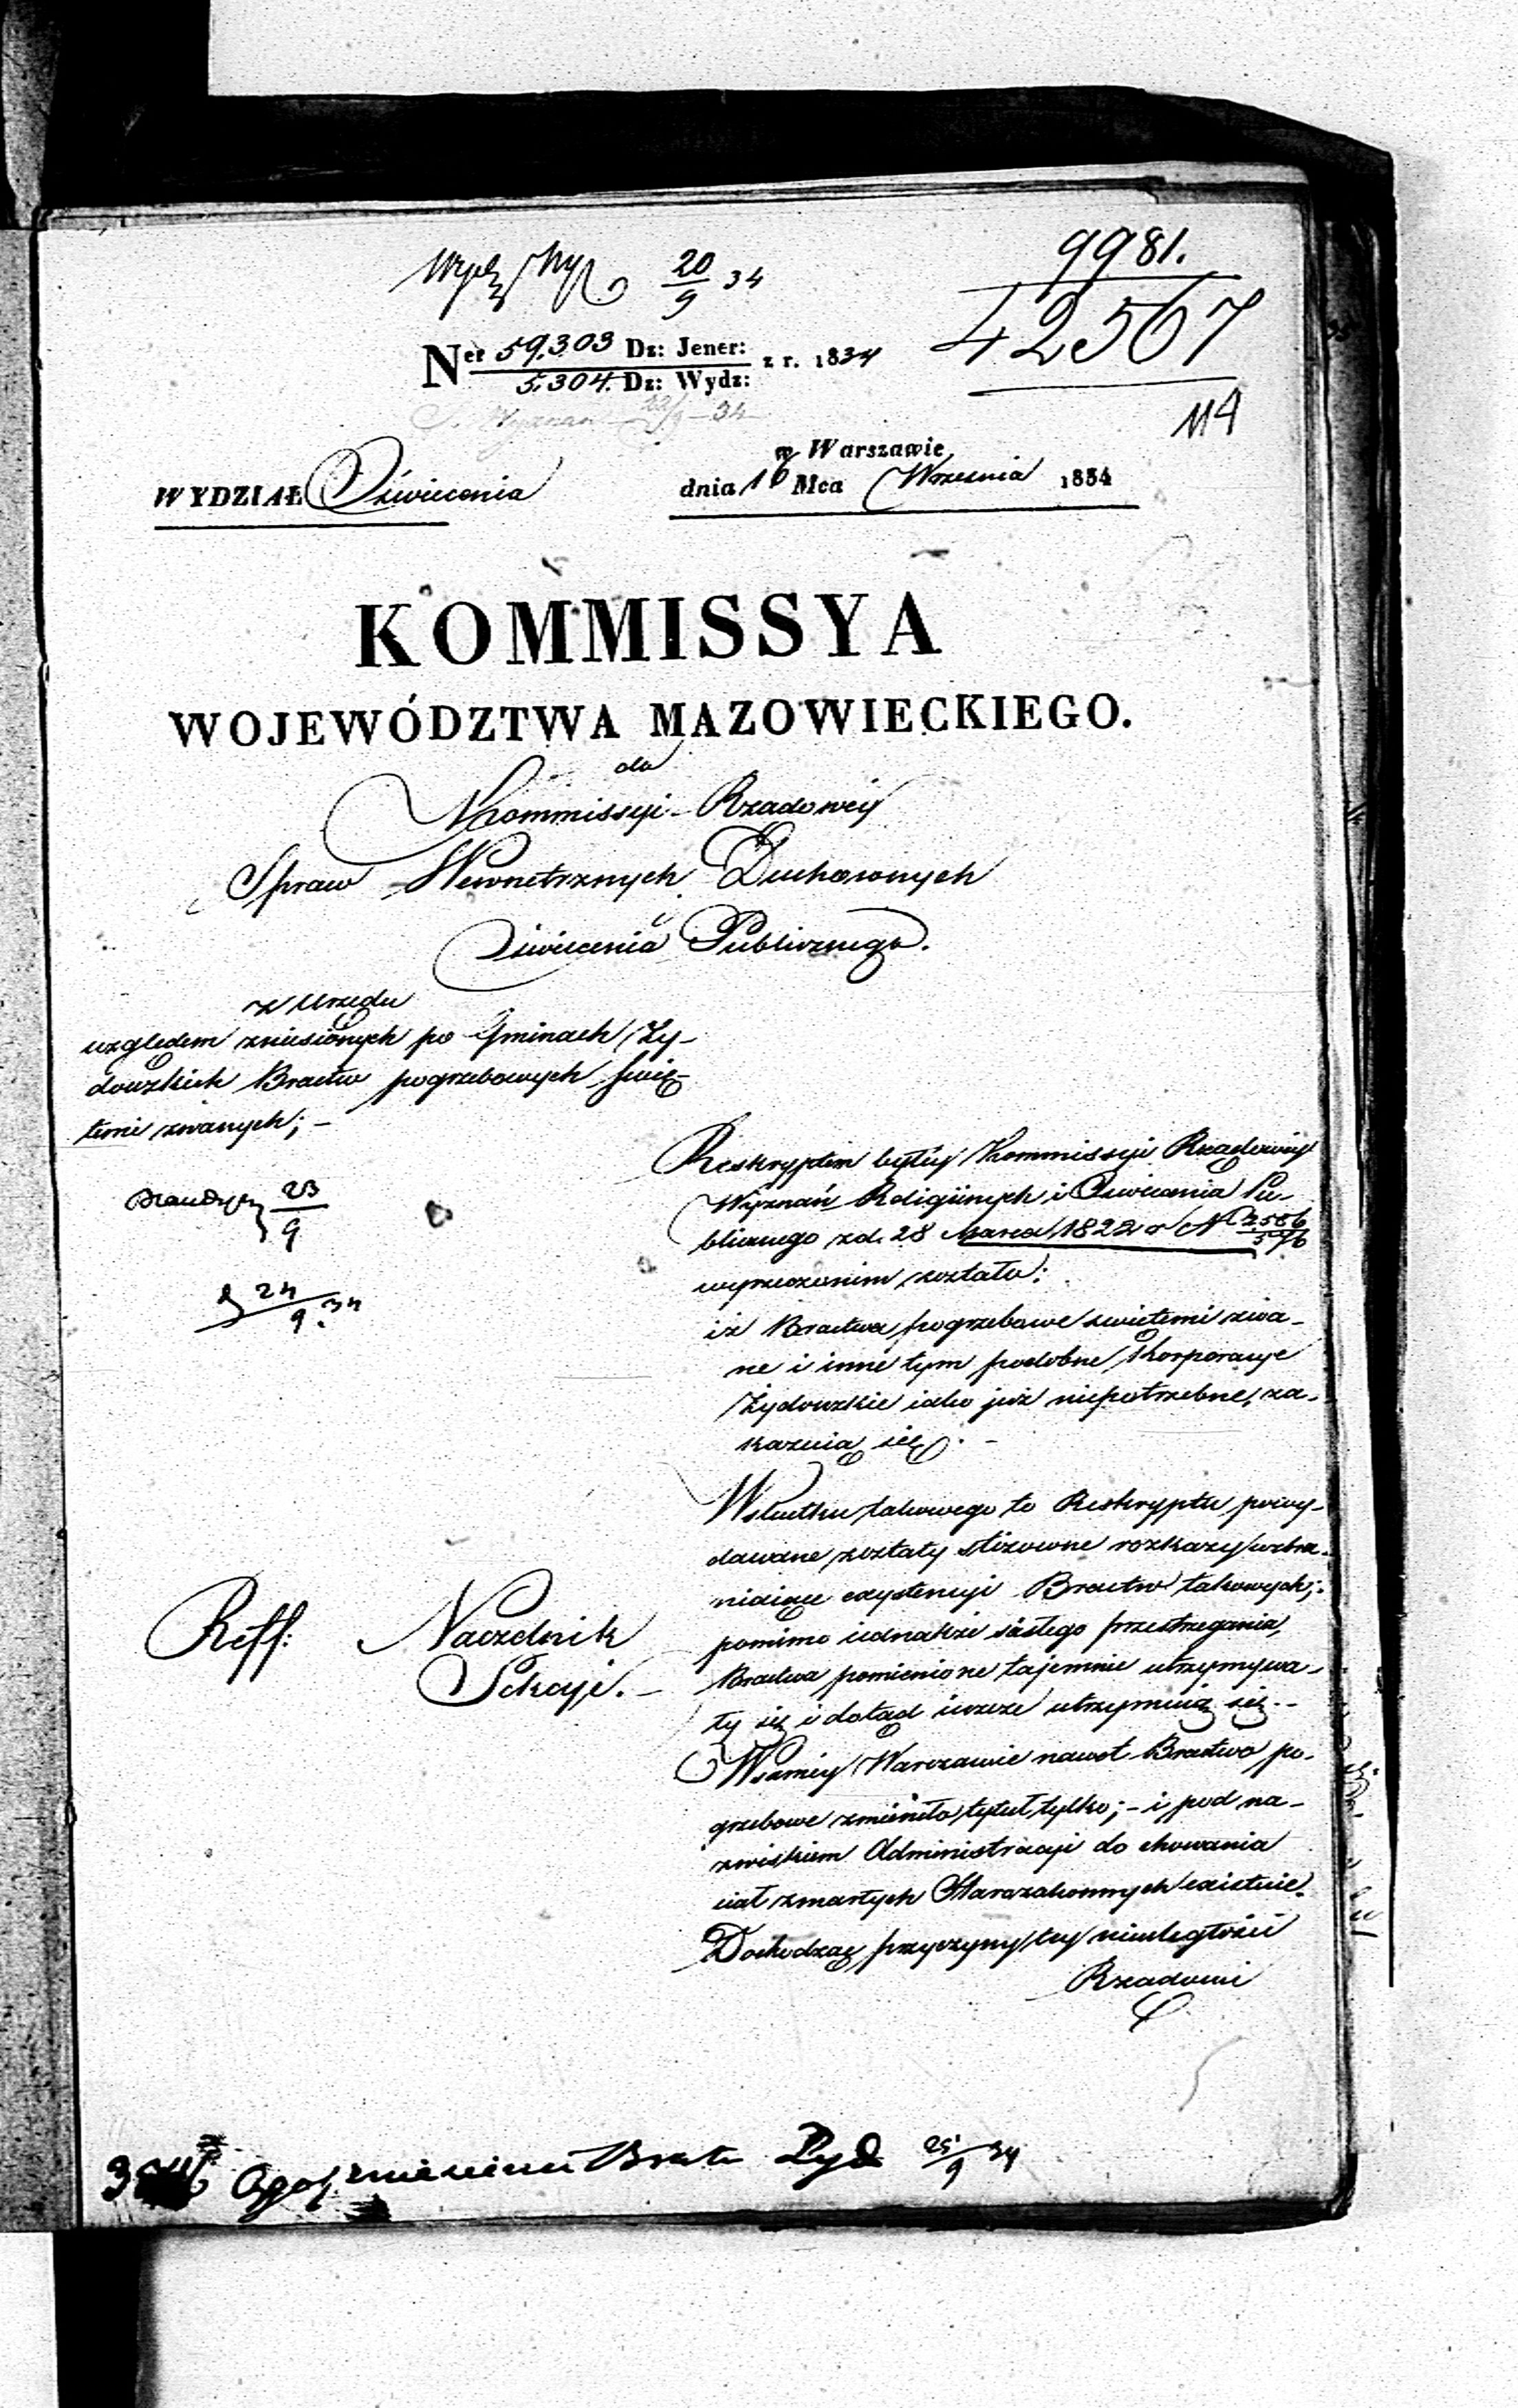 20/9 34
9981.
42567
114
Ner 59,303 Dz: Jener: z r. 1834
5,304. Dz: Wydz:
w Warszawie
WYDZIAŁ Oświecenia
dnia 16 Mca Września 1834
KOMMISSYA
WOJEWÓDZTWA MAZOWIECKIEGO.
do
Kommissyi Rządowey
Spraw Wewnetrznych Duchownych
Oświecenia Publicznego.
z Urzędu
względem zniesionych po Gminach Ży-
dowskich Bractw pogrzebowych świę-
temi zwanych; -
23/9
24/9. 34
Reskryptem byłéy Kommissyi Rządowéy
Wyznań Religiinych i Oświecenia Pu-
blicznego z d. 28 Marca 1822 r N 2586/576
wyrzeczonem zostało:
iż Bractwa pogrzebowe świetemi zwa-
ne i inne tym podobne Korporacye
Żydowskie iako już niepotrzebne, za-
kazuią się. -
Wskutku takowego to Reskryptu powy-
dawane zostały stósowne rozkazy wzbra-
niaiące exystencyi Bractw takowych;
pomimo iednakże ścisłego przestrzegania,
Bractwa pomienione tajemnie utrzymywa-
ły się i dotąd ieszcze utrzymuią się. -
Wsaméy Warszawie nawet Bractwo po-
grzebowe zmieniło tytuł tylko; - i pod na-
zwiskiem Administracyi do chowania
ciał zmarłych Starozakonnych existuie.
Dochodząc przyczyny téy nieuległości
Rządowi
Reff: Naczelnik
Sekcyi. -
zniesieniu Bract Żyd 25/9 34